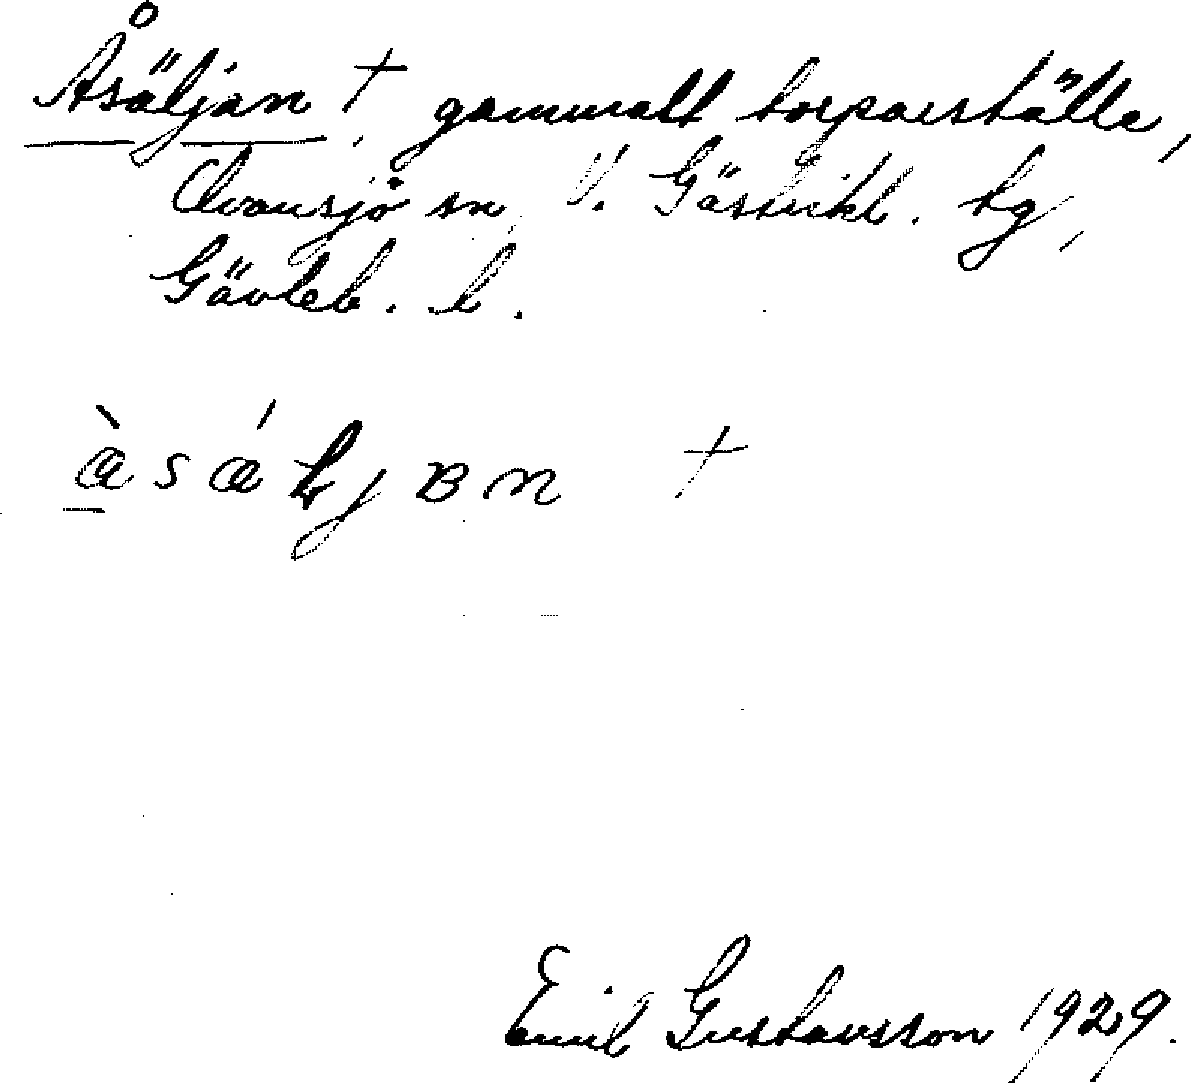 Åsäljan † gammalt torparställe,
Ovansjö sn, V. Gästrikl. tg,
Gävleb. l.
†
Emil Gustavsson 1929.